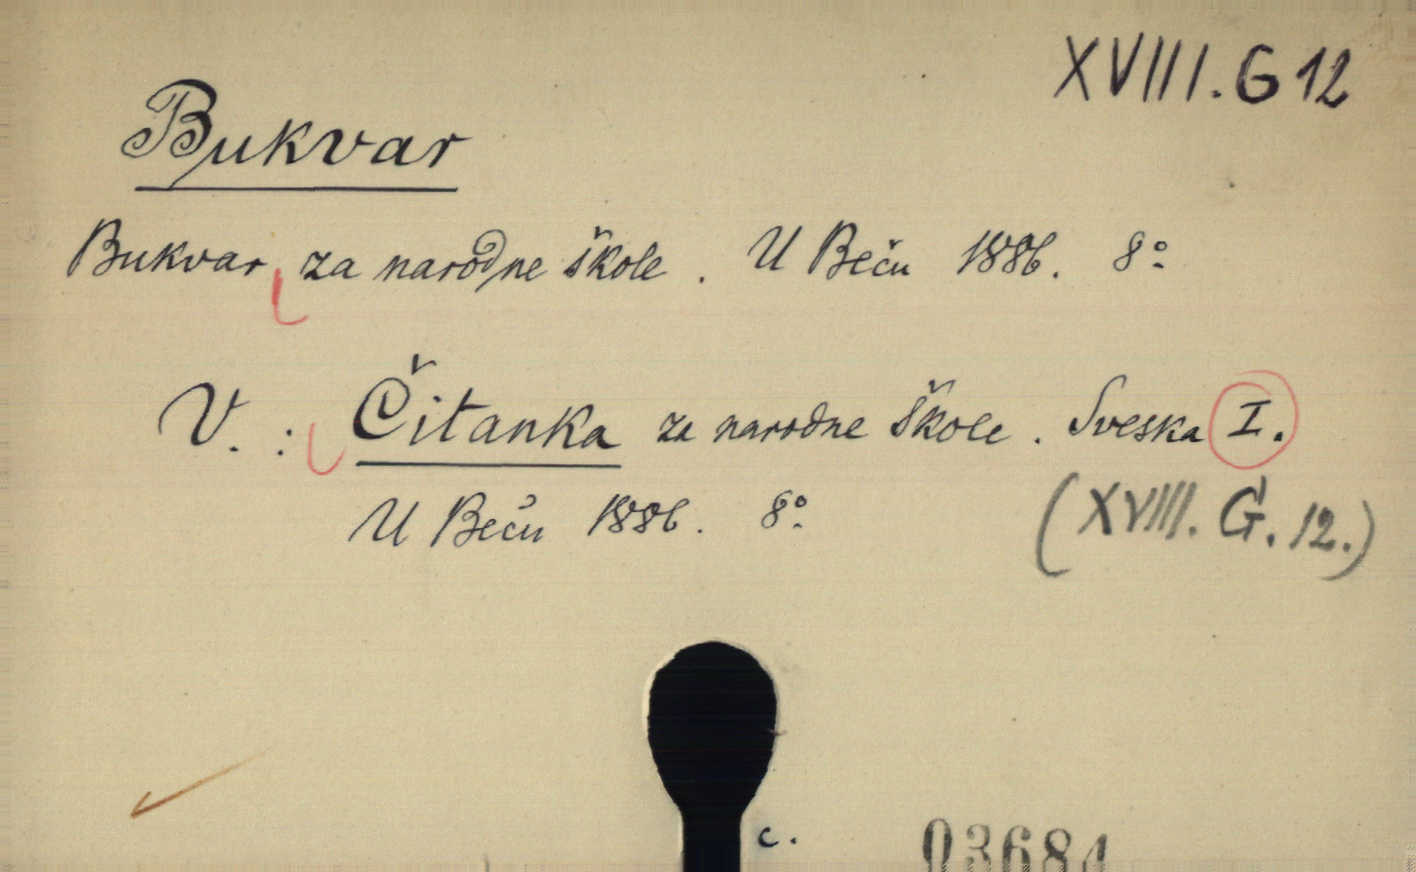 XVIII. G 12
Bukvar
Bukvar za narodne škole. U Beču 1886. 8°
V.: Čitanka za narodne škole. Sveska I.
U Beču 1886. 8°
(XVIII. G. 12.)
c.
03684